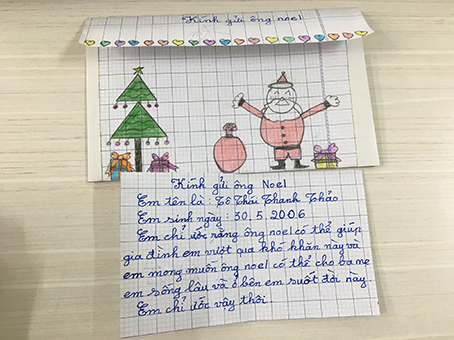 Kính gửi ông noel
Kính gửi ông Noel
Em tên là : Tô Thái Thanh Thảo
Em sinh ngày : 30.5.2006
Em chỉ ước rằng ông noel có thể giúp
gia đình em vượt qua khó khăn này và
em mong muốn ông noel có thể cho ba mẹ
em sống lâu và ở bên em suốt đời này.
Em chỉ ước vậy thôi.